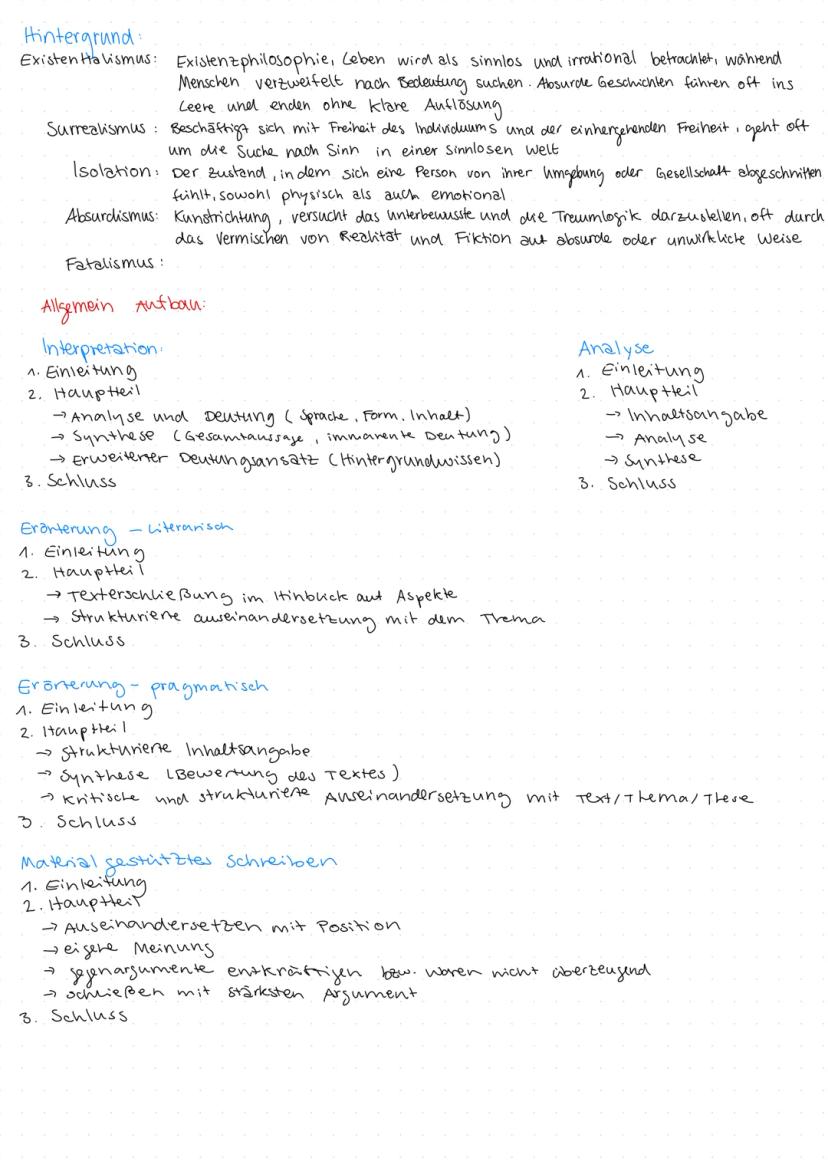 Hintergrund:
Existentialismus: Existenzphilosophie, Leben wird als sinnlos und irrational betrachtet, während
Menschen verzweifelt nach Bedeutung suchen. Absurde Geschichten führen oft ins
Leere und enden ohne klare Auflösung
Surrealismus: Beschäftigt sich mit Freiheit des Individuums und der einhergehenden Freiheit, geht oft
um die Suche nach Sinn in einer sinnlosen Welt
Isolation: Der Zustand, in dem sich eine Person von ihrer Umgebung oder Gesellschaft abgeschnitten
fühlt, sowohl physisch als auch emotional
Absurdismus: Kunstrichtung, versucht das Unterbewusste und die Traumlogik darzustellen, oft durch
das Vermischen von Realität und Fiktion auf absurde oder unwirkliche Weise
Fatalismus:
Allgemein Aufbau:
Interpretation:
1. Einleitung
2. Hauptteil
→ Analyse und Deutung (Sprache, Form, Inhalt)
→ Synthese (Gesamtaussage, immanente Deutung)
→ Erweiterter Deutungsansatz (Hintergrundwissen)
3. Schluss
Analyse
1. Einleitung
2. Hauptteil
→ Inhaltsangabe
→ Analyse
→ Synthese
3. Schluss
Erörterung – Literarisch
1. Einleitung
2. Hauptteil
→ Texterschließung im Hinblick auf Aspekte
→ Strukturierte auseinandersetzung mit dem Thema
3. Schluss
Erörterung – pragmatisch
1. Einleitung
2. Hauptteil
→ Strukturierte Inhaltsangabe
→ Synthese (Bewertung des Textes)
→ Kritische und strukturierte Auseinandersetzung mit Text/Thema/These
3. Schluss
Material gestütztes Schreiben
1. Einleitung
2. Hauptteil
→ Auseinandersetzen mit Position
→ eigene Meinung
→ gegenargumente entkräftigen bzw. waren nicht überzeugend
→ schließen mit stärksten Argument
3. Schluss